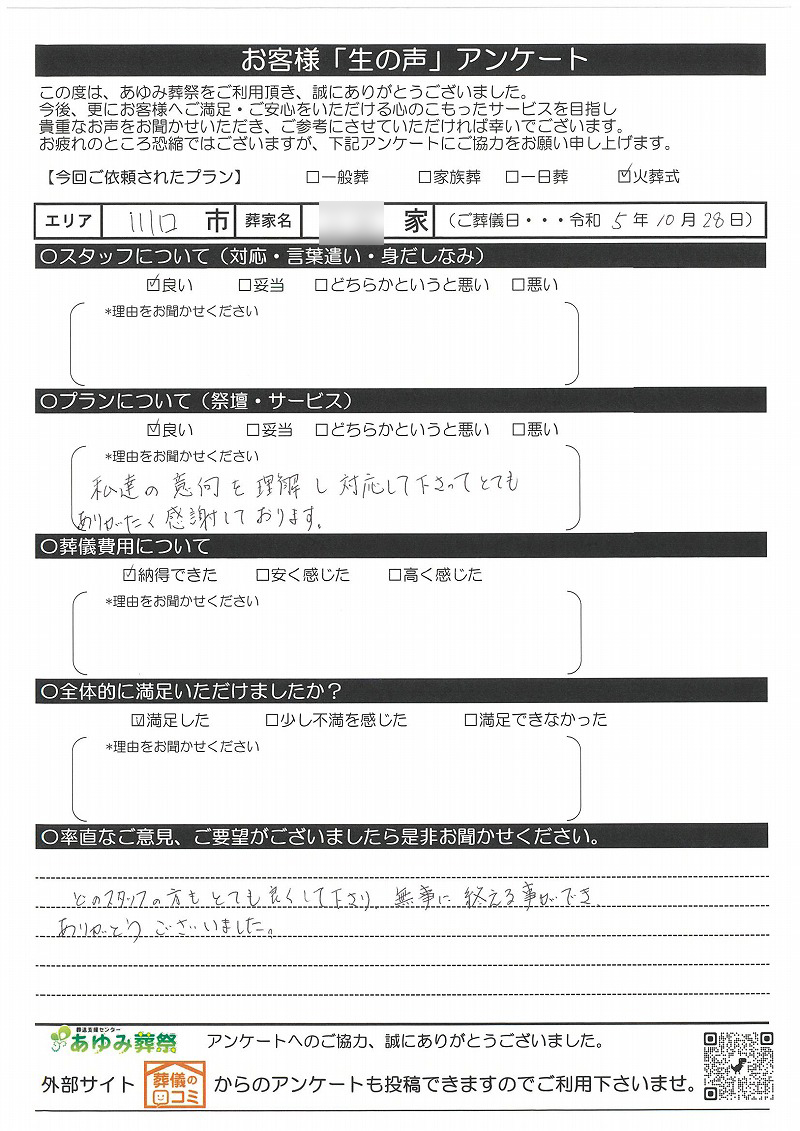 お客様「生の声」アンケート
この度は、あゆみ葬祭をご利用頂き、誠にありがとうございました。
今後、更にお客様へご満足・ご安心をいただける心のこもったサービスを目指し
貴重なお声をお聞かせいただき、ご参考にさせていただければ幸いでございます。
お疲れのところ恐縮ではございますが、下記アンケートにご協力をお願い申し上げます。
【今回ご依頼されたプラン】 □一般葬 □家族葬 □一日葬 ☑火葬式
エリア 川口 市 葬家名 家 (ご葬儀日・・・令和 5 年 10 月 28 日)
○スタッフについて(対応・言葉遣い・身だしなみ)
☑良い □妥当 □どちらかというと悪い □悪い
*理由をお聞かせください
○プランについて(祭壇・サービス)
☑良い □妥当 □どちらかというと悪い □悪い
*理由をお聞かせください
私達の意向を理解し対応して下さってとても
ありがたく感謝しております。
○葬儀費用について
☑納得できた □安く感じた □高く感じた
*理由をお聞かせください
○全体的に満足いただけましたか?
☑満足した □少し不満を感じた □満足できなかった
*理由をお聞かせください
○率直なご意見、ご要望がございましたら是非お聞かせください。
どのスタッフの方もとても良くして下さり、無事に終える事ができ
ありがとうございました。
葬送支援センター
あゆみ葬祭 アンケートへのご協力、誠にありがとうございました。
外部サイト 葬儀の口コミ からのアンケートも投稿できますのでご利用下さいませ。